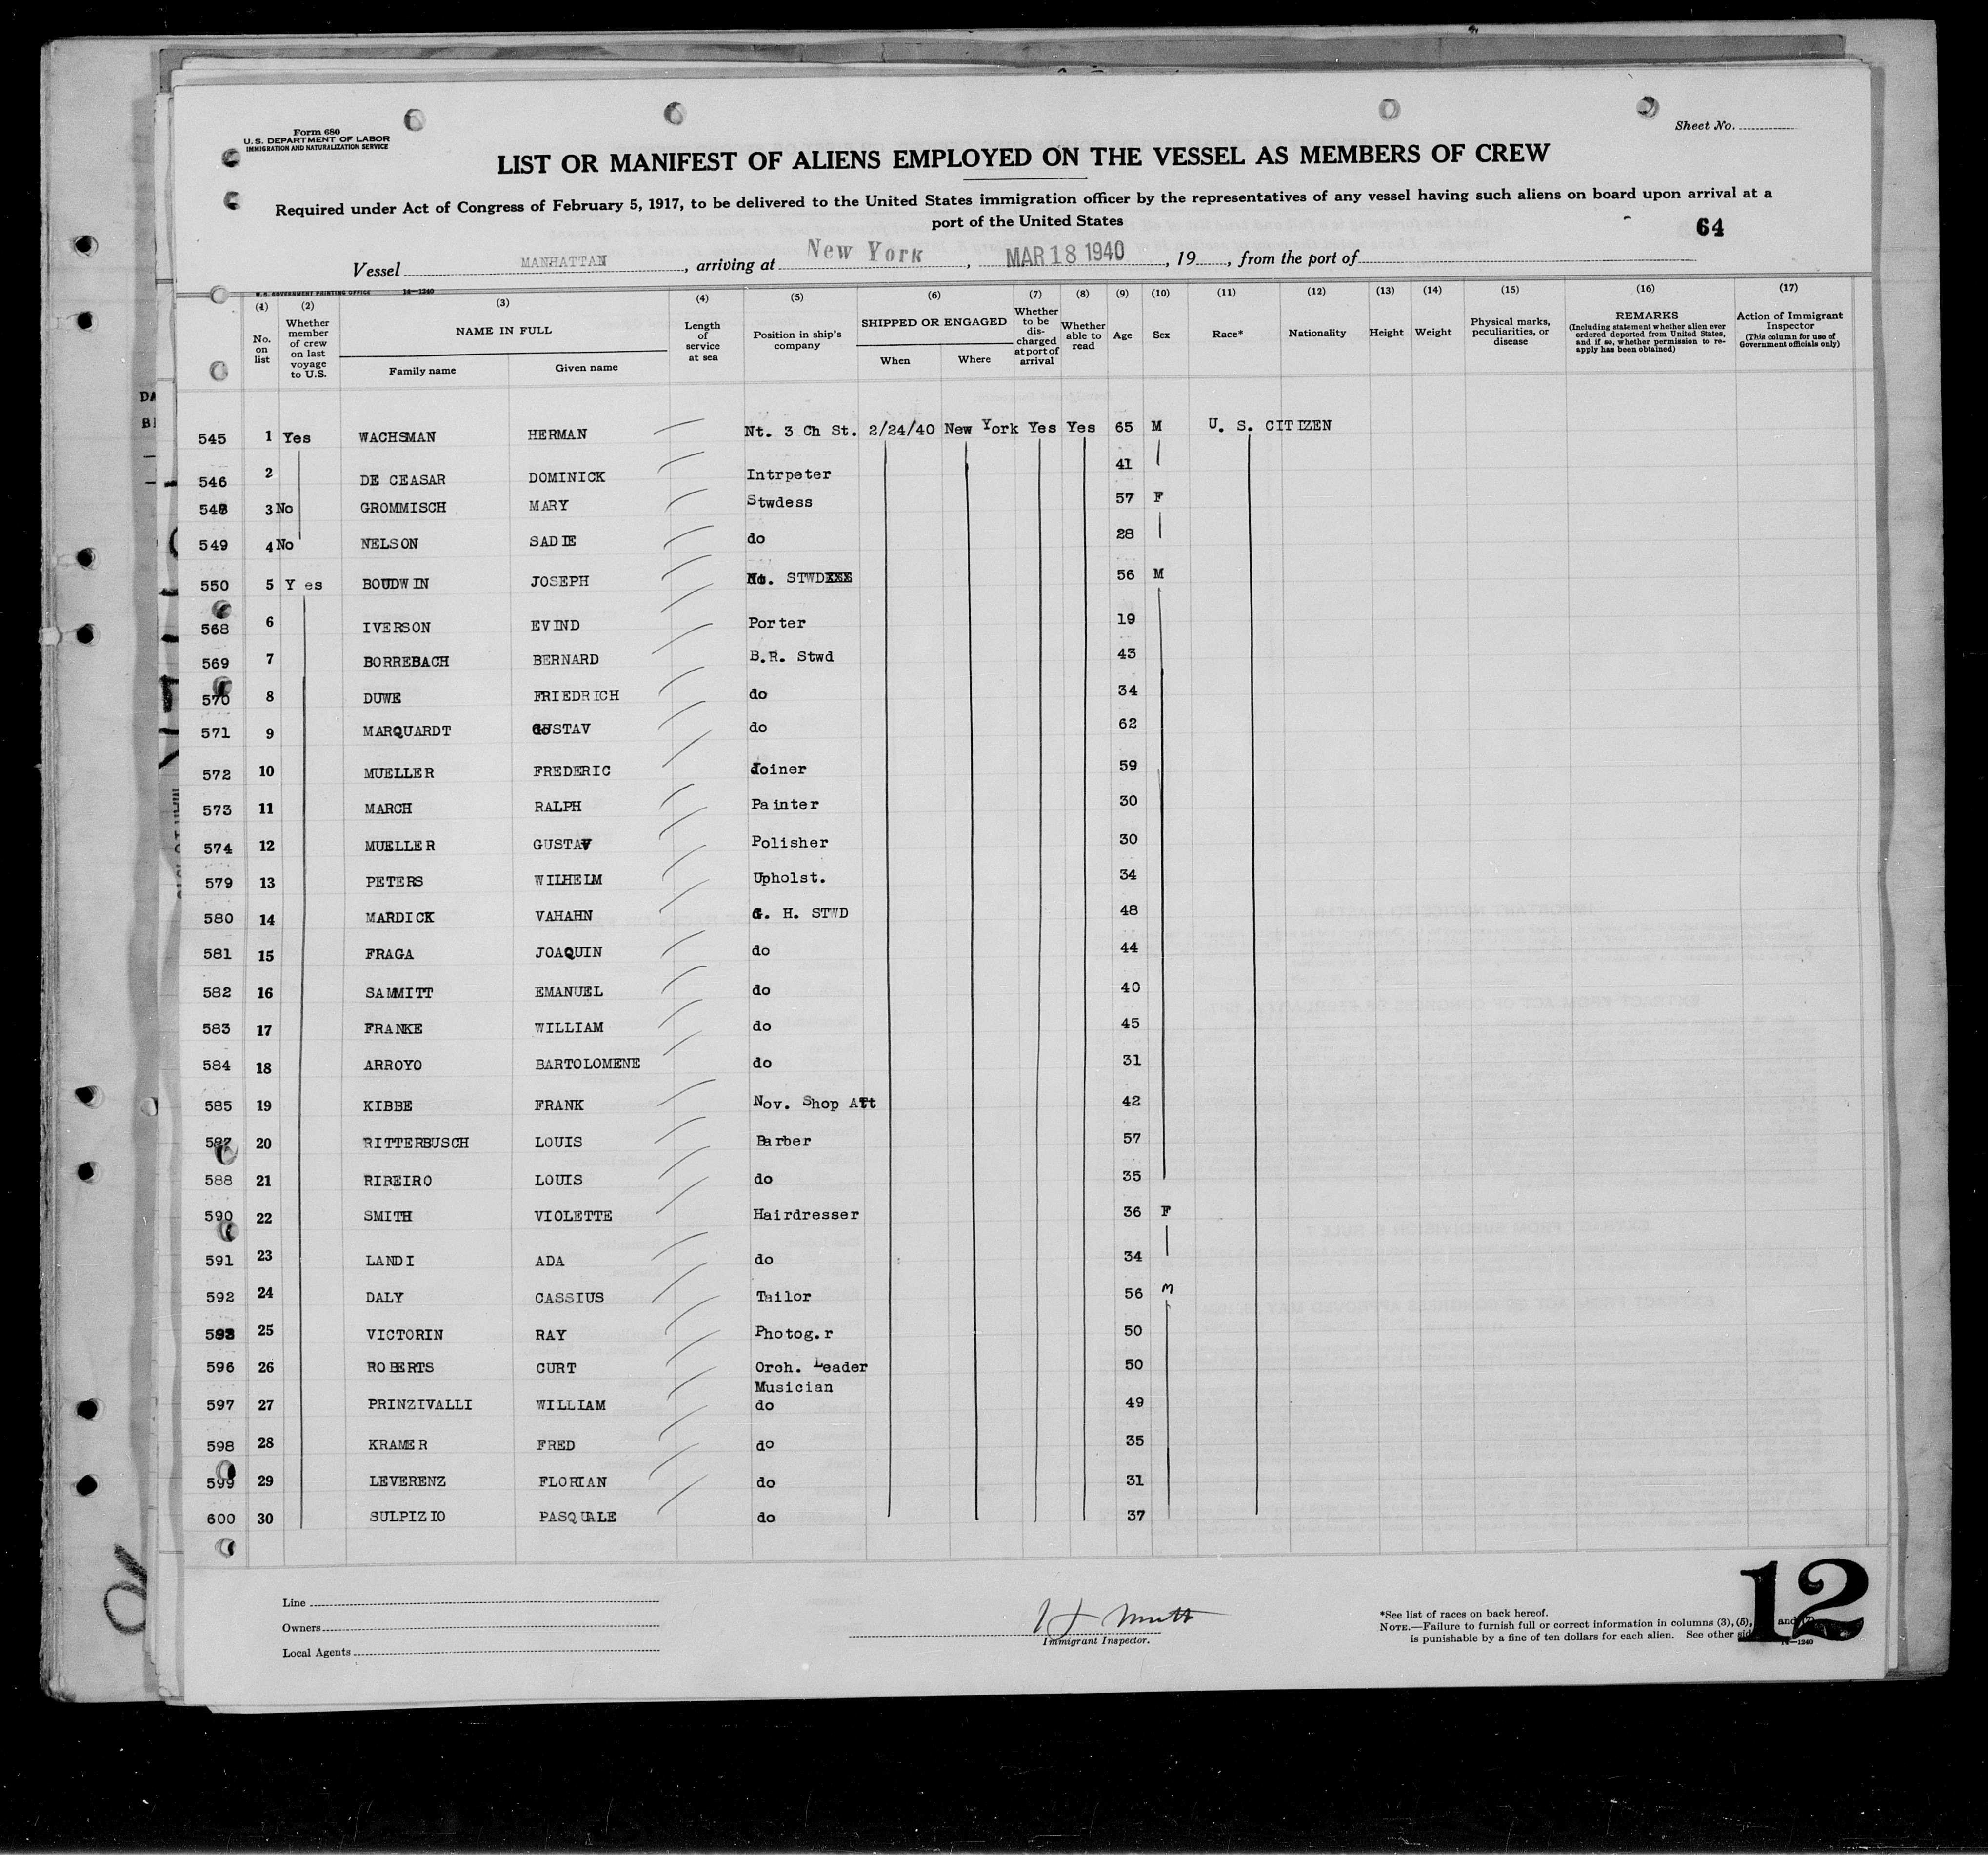 Form 680
U.S. DEPARTMENT OF LABOR
IMMIGRATION AND NATURALIZATION SERVICE
Sheet No.
LIST OR MANIFEST OF ALIENS EMPLOYED ON THE VESSEL AS MEMBERS OF CREW
Required under Act of Congress of February 5, 1917, to be delivered to the United States immigration officer by the representatives of any vessel having such aliens on board upon arrival at a
port of the United States
64
Vessel MANHATTAN, arriving at New York, MAR 18 1940, 19, from the port of
U.S. GOVERNMENT PRINTING OFFICE 14—1240
(1) (2) (3) (4) (5) (6) (7) (8) (9) (10) (11) (12) (13) (14) (15) (16) (17)
No. on list
Whether member of crew on last voyage to U.S.
NAME IN FULL
Family name
Given name
Length of service at sea
Position in ship's company
SHIPPED OR ENGAGED
When
Where
Whether to be discharged at port of arrival
Whether able to read
Age
Sex
Race*
Nationality
Height
Weight
Physical marks, peculiarities, or disease
REMARKS
(Including statement whether alien ever ordered deported from United States, and if so, whether permission to reapply has been obtained)
Action of Immigrant Inspector
(This column for use of Government officials only)
545 1 Yes WACHSMAN HERMAN Nt. 3 Ch St. 2/24/40 New York Yes Yes 65 M U. S. CITIZEN
546 2 DE CEASAR DOMINICK Intrpeter 41
548 3 No GROMMISCH MARY Stwdess 57 F
549 4 No NELSON SADIE do 28
550 5 Yes BOUDWIN JOSEPH Nt. STWD 56 M
568 6 IVERSON EVIND Porter 19
569 7 BORREBACH BERNARD B.R. Stwd 43
570 8 DUWE FRIEDRICH do 34
571 9 MARQUARDT GUSTAV do 62
572 10 MUELLER FREDERIC Joiner 59
573 11 MARCH RALPH Painter 30
574 12 MUELLER GUSTAV Polisher 30
579 13 PETERS WILHELM Upholst. 34
580 14 MARDICK VAHAHN G. H. STWD 48
581 15 FRAGA JOAQUIN do 44
582 16 SAMMITT EMANUEL do 40
583 17 FRANKE WILLIAM do 45
584 18 ARROYO BARTOLOMENE do 31
585 19 KIBBE FRANK Nov. Shop Att 42
587 20 RITTERBUSCH LOUIS Barber 57
588 21 RIBEIRO LOUIS do 35
590 22 SMITH VIOLETTE Hairdresser 36 F
591 23 LANDI ADA do 34
592 24 DALY CASSIUS Tailor 56 M
593 25 VICTORIN RAY Photog.r 50
596 26 ROBERTS CURT Orch. Leader 50
Musician
597 27 PRINZIVALLI WILLIAM do 49
598 28 KRAMER FRED do 35
599 29 LEVERENZ FLORIAN do 31
600 30 SULPIZIO PASQUALE do 37
Line
Owners
Local Agents
Immigrant Inspector.
*See list of races on back hereof.
NOTE.—Failure to furnish full or correct information in columns (3), (5), and (7)
is punishable by a fine of ten dollars for each alien. See other
14—1240
12